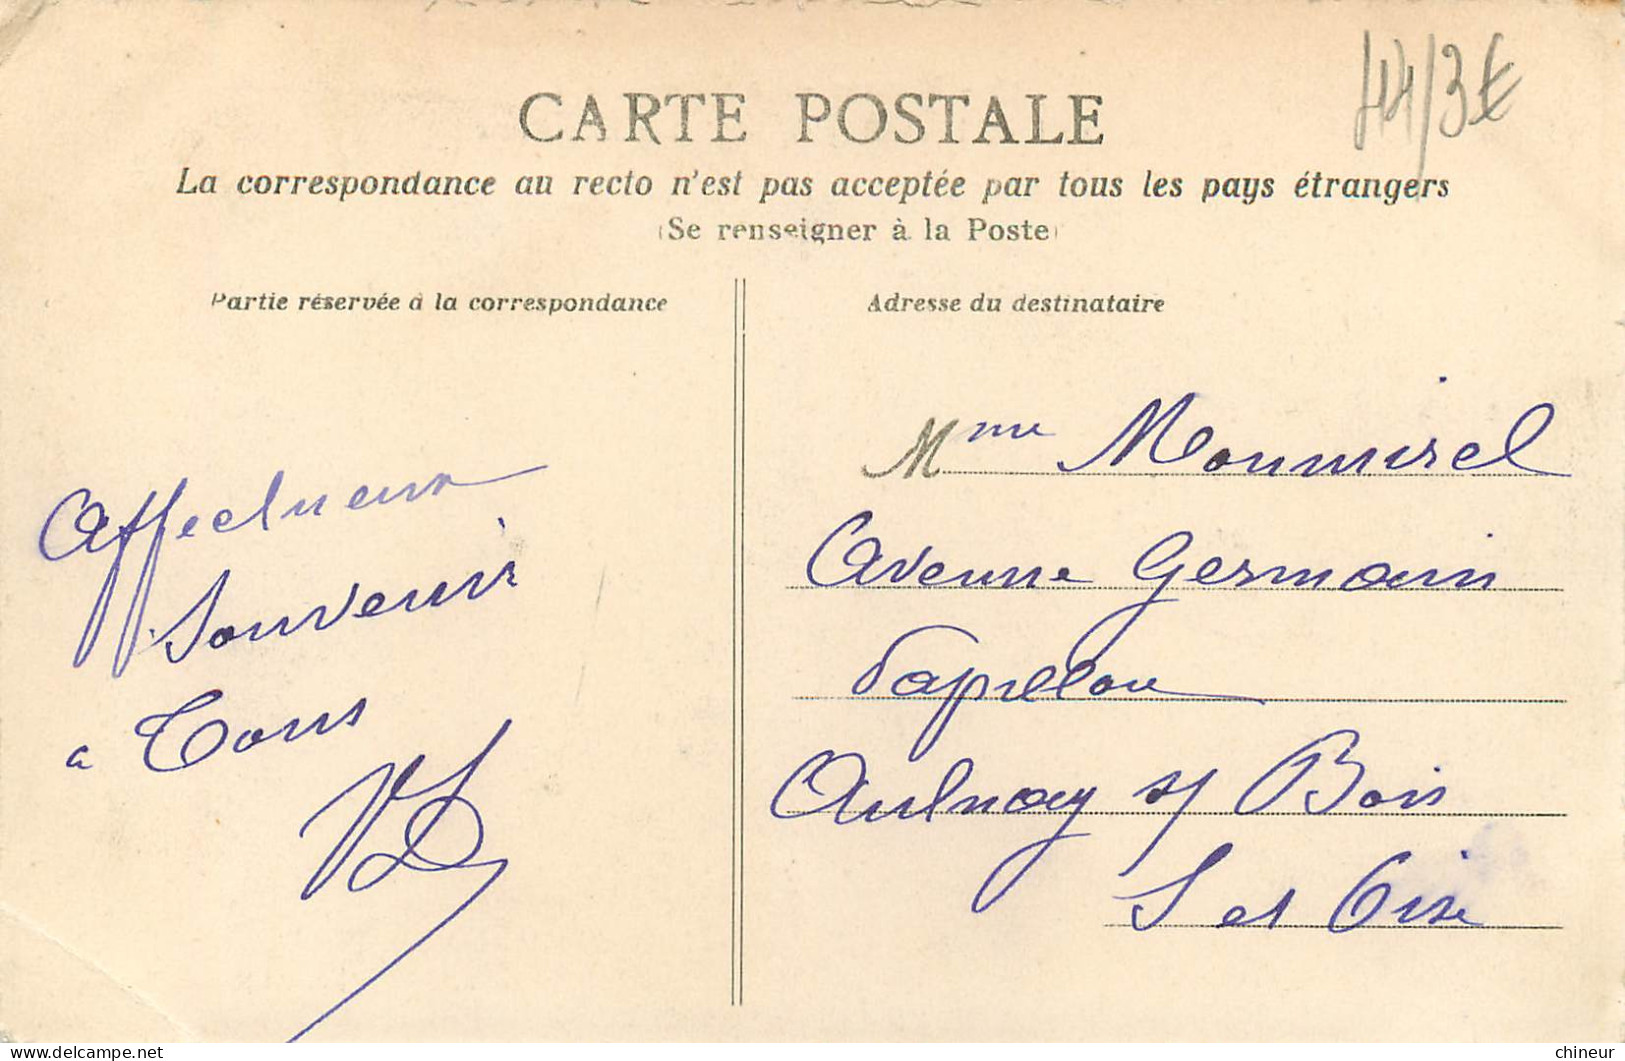 44/3€
CARTE POSTALE
La correspondance au recto n'est pas acceptée par tous les pays étrangers
(Se renseigner à la Poste)
Partie réservée à la correspondance
Affectueux
Souvenir
a Tous
Adresse du destinataire
Mme
Avenue Germain
Papillon
Aulnay s/ Bois
S et Oise
chineur